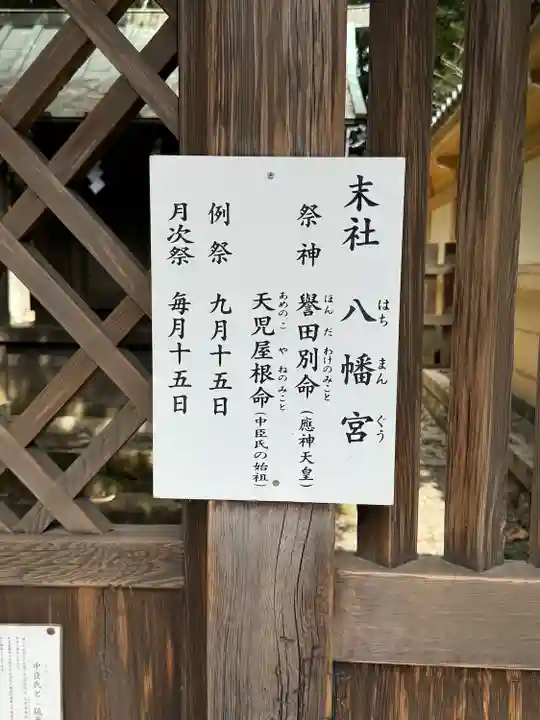 末社 八幡宮
はち まん ぐう
祭神 譽田別命(應神天皇)
ほん だ わけのみこと
天児屋根命(中臣氏の始祖)
あめの こ や ねのみこと
例祭 九月十五日
月次祭 毎月十五日
中臣氏と